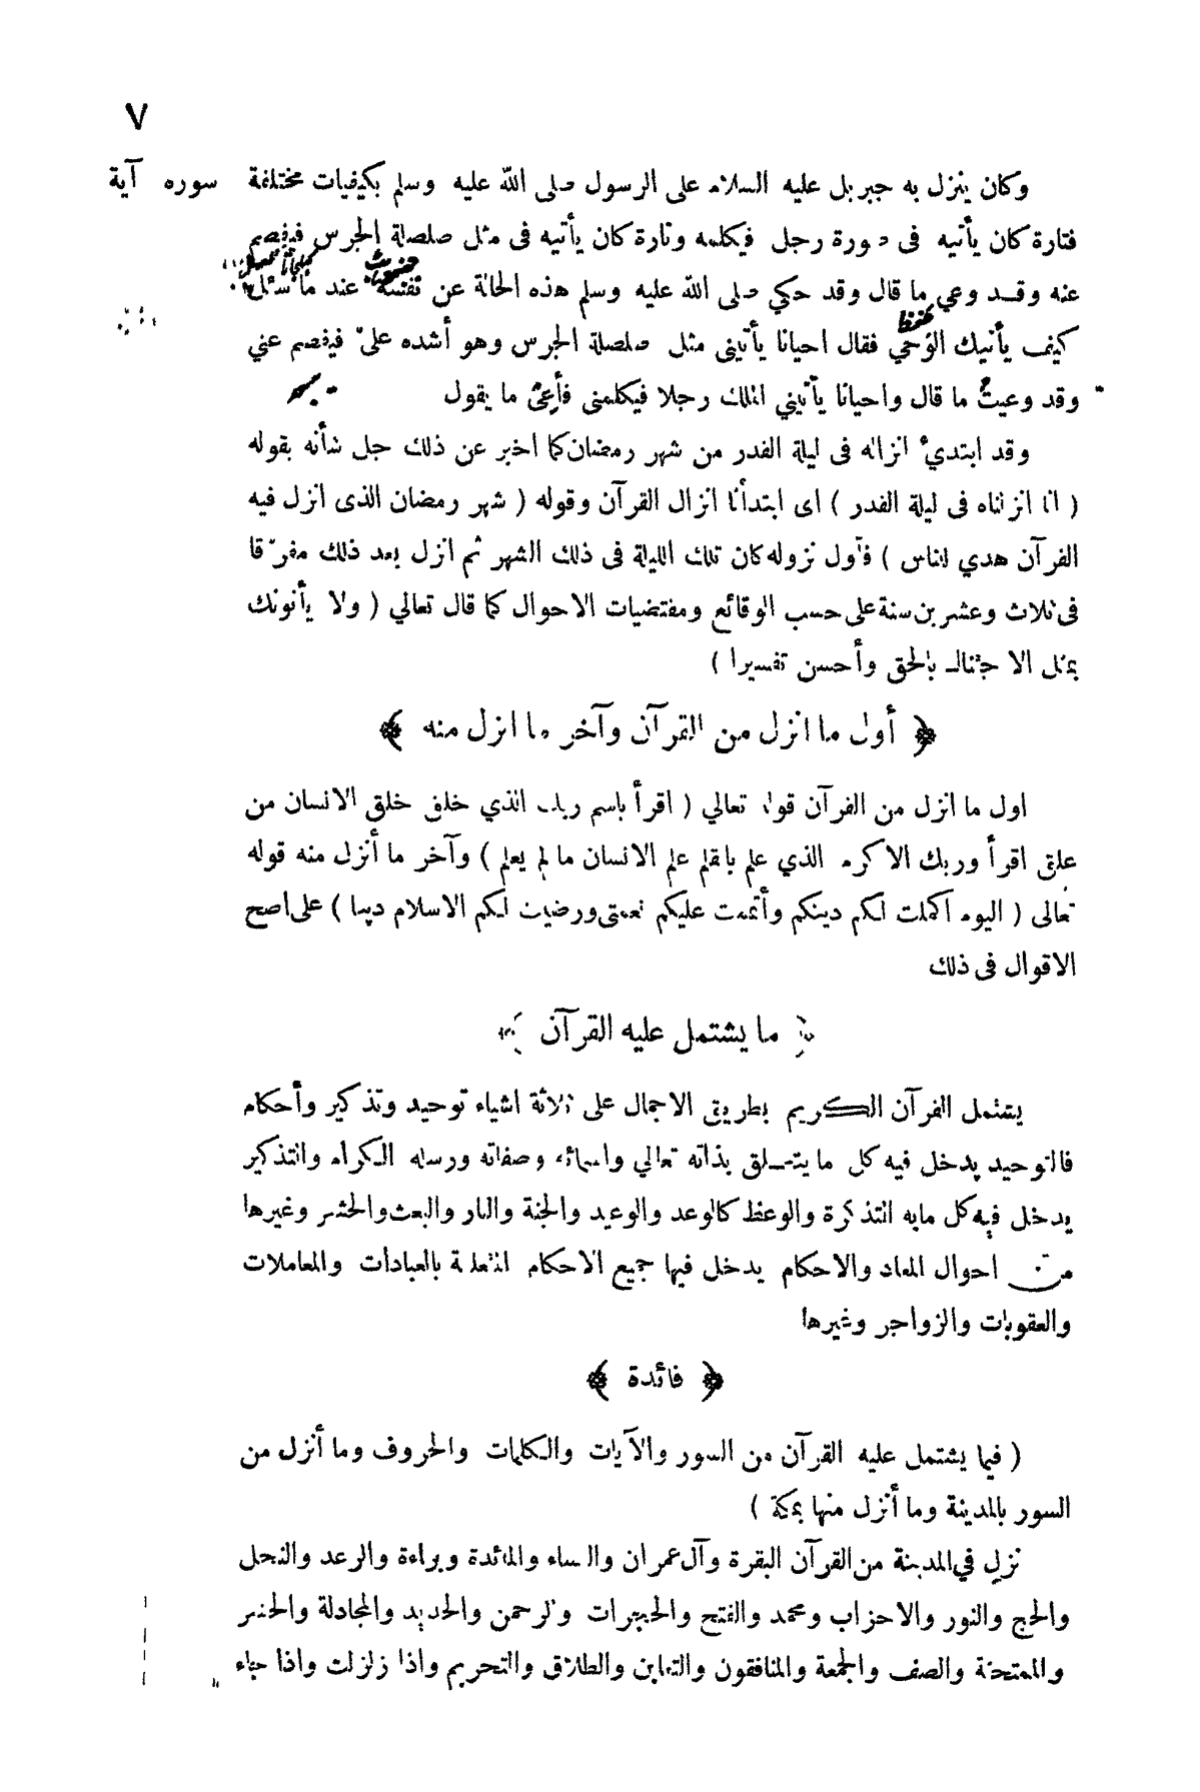 ٧
سوره آية
وكان ينزل به جبريل عليه السلام على الرسول صلى الله عليه وسلم بكيفيات مختلفة
فتارة كان يأتيه فى صورة رجل فيكلمه وتارة كان يأتيه فى مثل صلصلة الجرس فيفصم
عنه وقد وعي ما قال وقد حكي صلى الله عليه وسلم هذه الحالة عن نفسه عند ما سئل
كيف يأتيك الوحي فقال احيانا يأتينى مثل صلصلة الجرس وهو أشده علىّ فيفصم عني
وقد وعيت ما قال واحيانا يأتيني الملك رجلا فيكلمنى فأعي ما يقول
وقد ابتدئ انزاله فى ليلة القدر من شهر رمضان كما اخبر عن ذلك جل شأنه بقوله
( انا انزلناه فى ليلة القدر ) اى ابتدأنا انزال القرآن وقوله ( شهر رمضان الذى انزل فيه
القرآن هدي للناس ) فأول نزوله كان تلك الليلة فى ذلك الشهر ثم انزل بعد ذلك مفرّقا
فى ثلاث وعشرين سنة على حسب الوقائع ومقتضيات الاحوال كما قال تعالي ( ولا يأتونك
بمثل الا جئناك بالحق وأحسن تفسيرا )
﴿ أول ما انزل من القرآن وآخر ما انزل منه ﴾
اول ما انزل من القرآن قوله تعالي ( اقرأ باسم ربك الذي خلق خلق الانسان من
علق اقرأ وربك الاكرم الذي علم بالقلم علم الانسان ما لم يعلم ) وآخر ما أنزل منه قوله
تعالى ( اليوم أكملت لكم دينكم وأتممت عليكم نعمتى ورضيت لكم الاسلام دينا ) على اصح
الاقوال فى ذلك
﴿ ما يشتمل عليه القرآن ﴾
يشتمل القرآن الكريم بطريق الاجمال على ثلاثة اشياء توحيد وتذكير وأحكام
فالتوحيد يدخل فيه كل ما يتعلق بذاته تعالي واسمائه وصفاته ورسله الكرام والتذكير
يدخل فيه كل مابه التذكرة والوعظ كالوعد والوعيد والجنة والنار والبعث والحشر وغيرها
من احوال المعاد والاحكام يدخل فيها جميع الاحكام المتعلقة بالعبادات والمعاملات
والعقوبات والزواجر وغيرها
﴿ فائدة ﴾
( فيما يشتمل عليه القرآن من السور والآيات والكلمات والحروف وما أنزل من
السور بالمدينة وما أنزل منها بمكة )
نزل في المدينة من القرآن البقرة وآل عمران والنساء والمائدة وبراءة والرعد والنحل
والحج والنور والاحزاب ومحمد والفتح والحجرات والرحمن والحديد والمجادلة والحشر
والممتحنة والصف والجمعة والمنافقون والتغابن والطلاق والتحريم واذا زلزلت واذا جاء